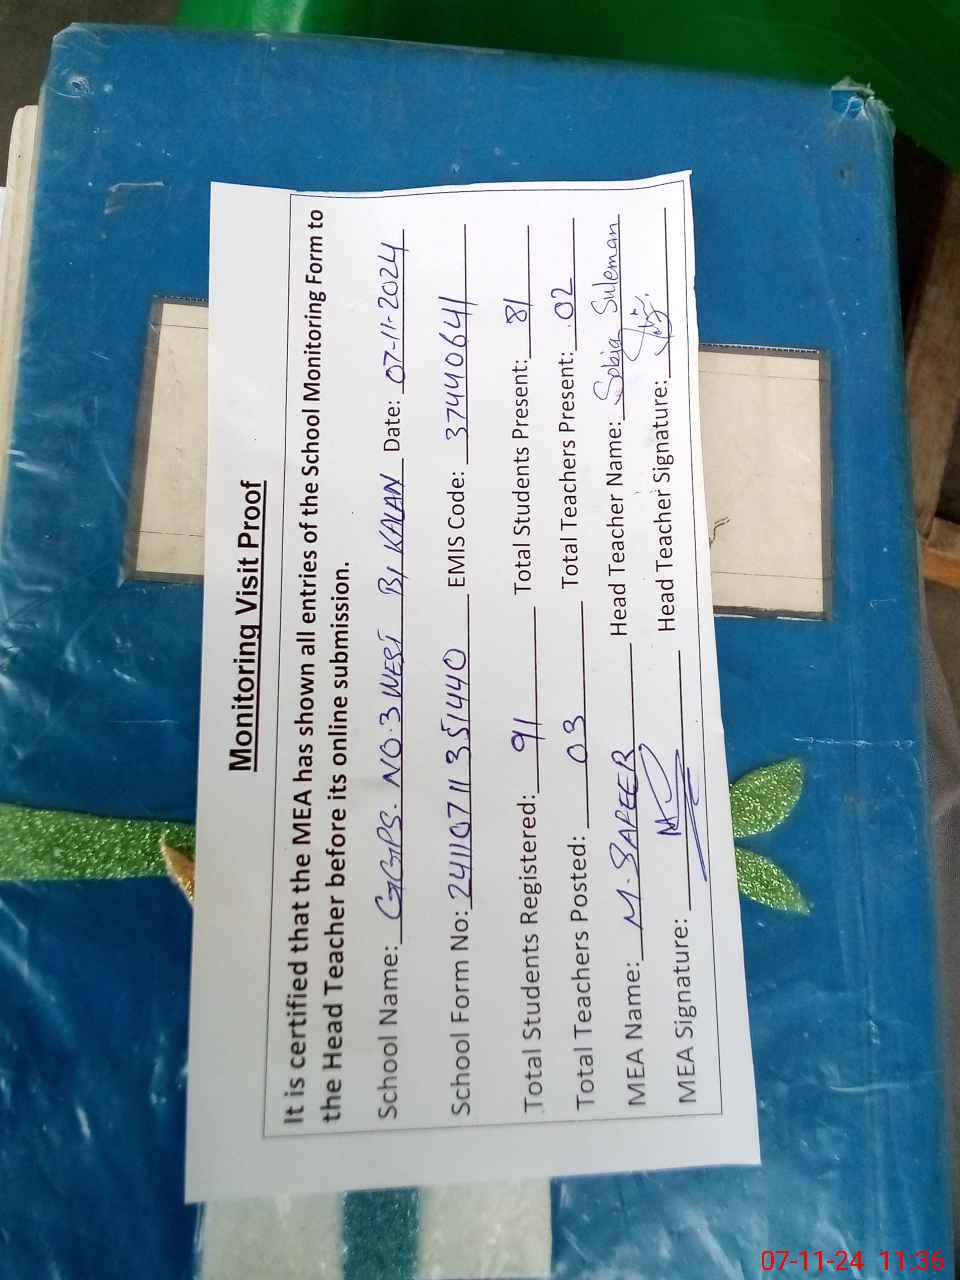 Monitoring Visit Proof
It is certified that the MEA has shown all entries of the School Monitoring Form to
the Head Teacher before its online submission.
School Name: GGPS. NO.3 WEST B, KALAN Date: 07-11-2024
School Form No: 24110711351440 EMIS Code: 37440641
Total Students Registered: 91 Total Students Present: 81
Total Teachers Posted: 03 Total Teachers Present: 02
MEA Name: M. SAPEER Head Teacher Name: Sobia Suleman
MEA Signature: Head Teacher Signature:
07-11-24 11:36